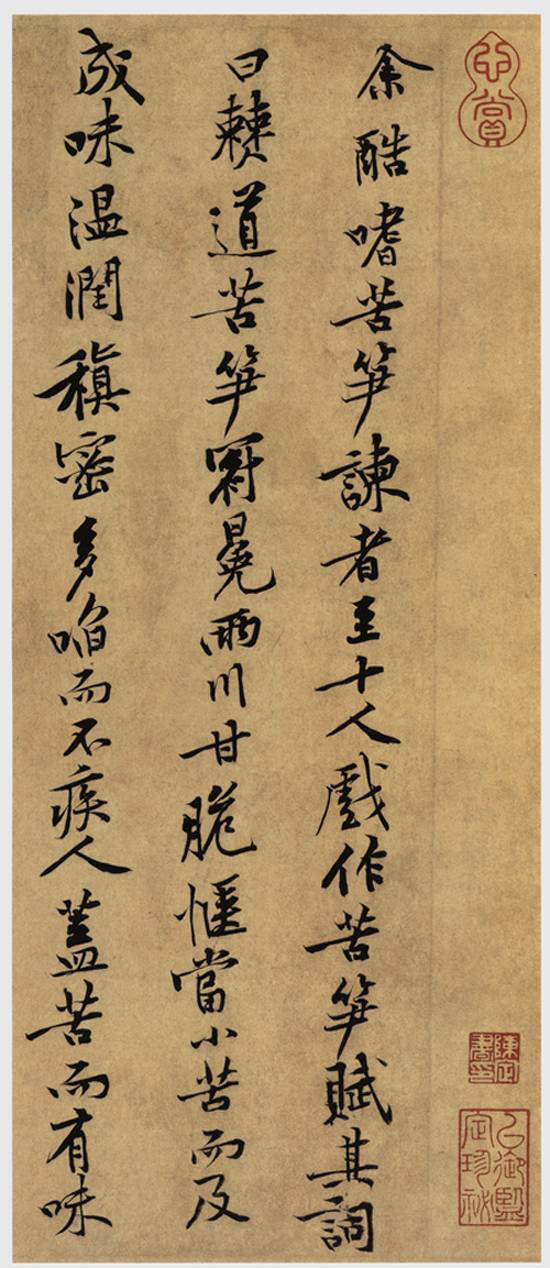 陳定書印
余酷嗜苦笋諫者至十人戲作苦笋賦其詞
曰僰道苦笋冠冕兩川甘脆愜當小苦而及
成味温潤稹密多啗而不疾人蓋苦而有味